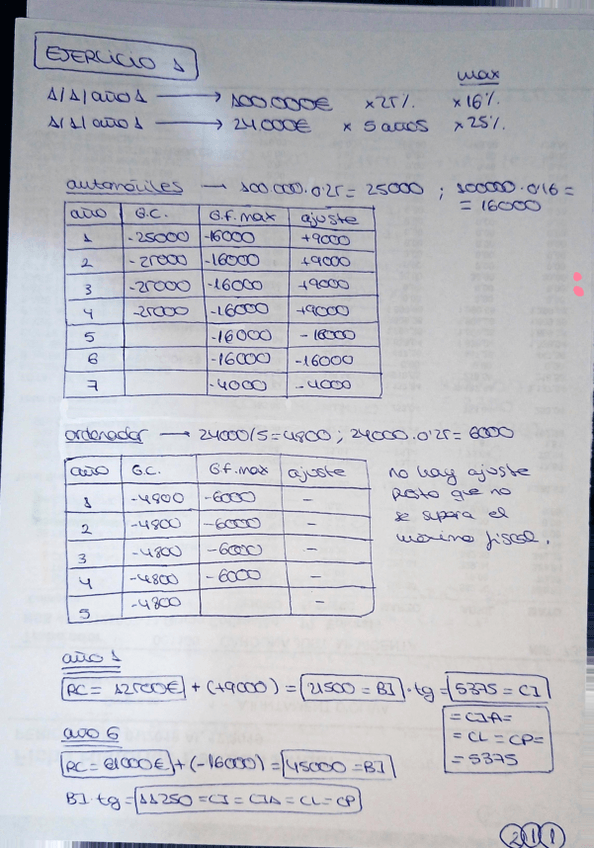 EJERCICIO 1
max
1/1/año 1 → 100.000€ x25% x16%
1/1/año 1 → 24.000€ x 5 años x25%
automóviles → 100.000·0'25 = 25000 ; 100000·0'16 =
= 16000
año G.C. G.f.max ajuste
1 -25000 -16000 +9000
2 -25000 -16000 +9000
3 -25000 -16000 +9000
4 -25000 -16000 +9000
5 -16000 -16000
6 -16000 -16000
7 -4000 -4000
ordenador → 24000/5 = 4800 ; 24000·0'25 = 6000
año G.C. G.f.max ajuste
1 -4800 -6000 -
2 -4800 -6000 -
3 -4800 -6000 -
4 -4800 -6000 -
5 -4800 -
no hay ajuste
puesto que no
se supera el
máximo fiscal.
año 1
RC = 12500€ + (+9000) = 21500 = BI · tg = 5375 = CI
= CIA =
= CL = CP =
= 5375
año 6
RC = 61000€ + (-16000) = 45000 = BI
BI · tg = 11250 = CI = CIA = CL = CP
2 1 1